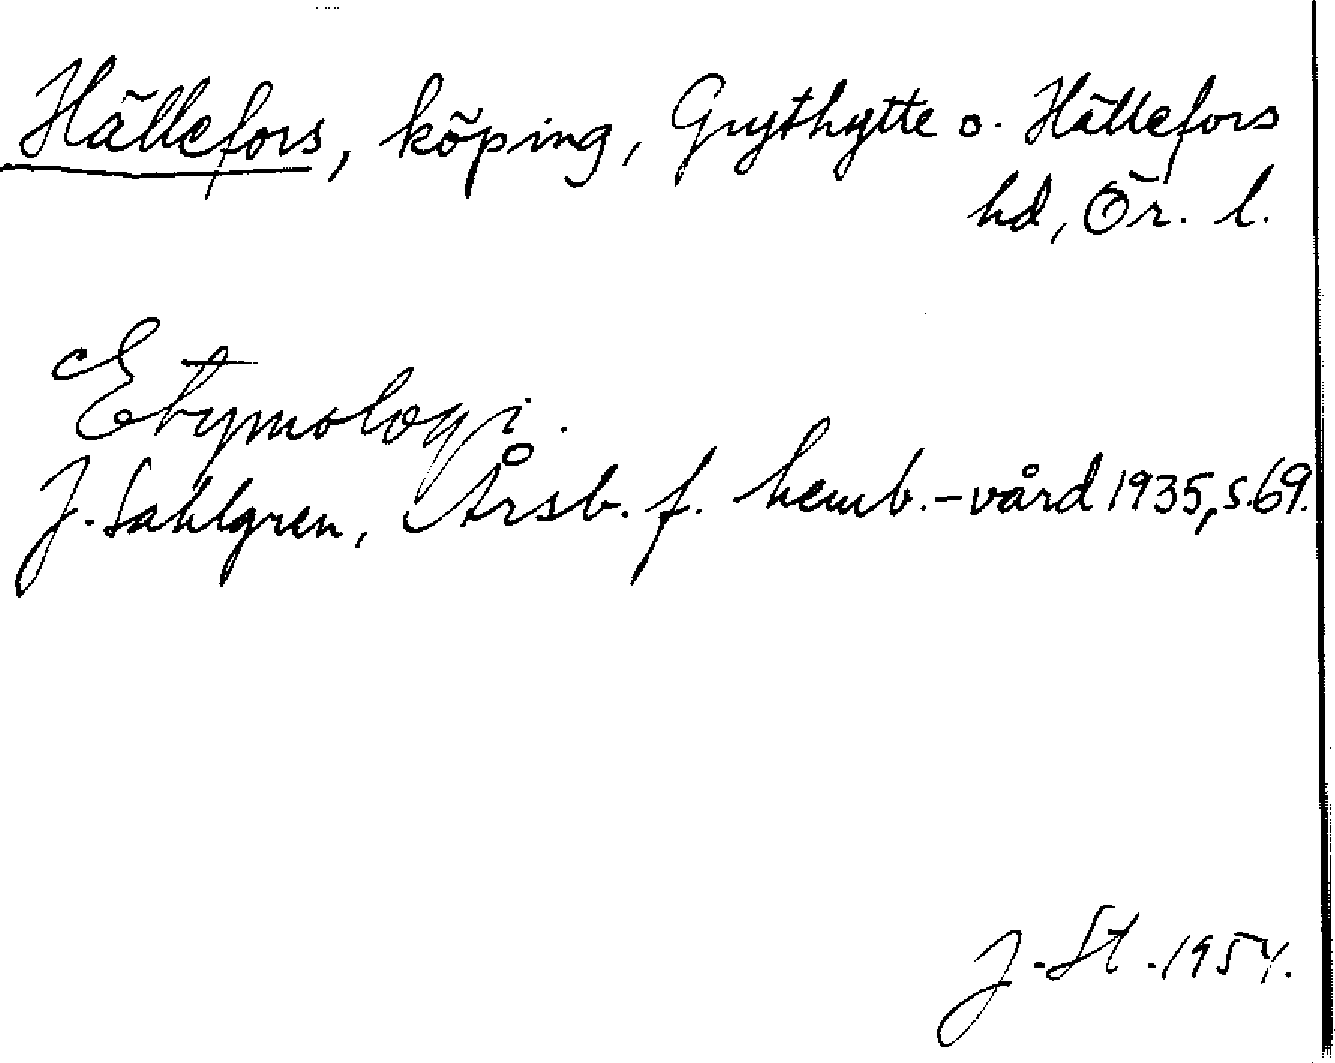 Hällefors, köping, Grythytte o. Hällefors
hd, Ör. l.
Etymologi.
J. Sahlgren, Årsb. f. hemb.-vård 1935, s. 69.
J. St. 1954.